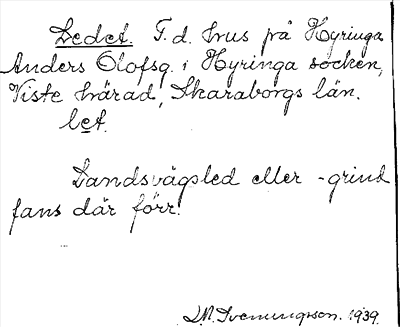 Ledet. F.d. hus på Hyringa
Anders Olofsg. i Hyringa socken,
Viste härad, Skaraborgs län.
let.
Landsvägsled eller -grind
fans där förr.
Sveningsson. 1939.